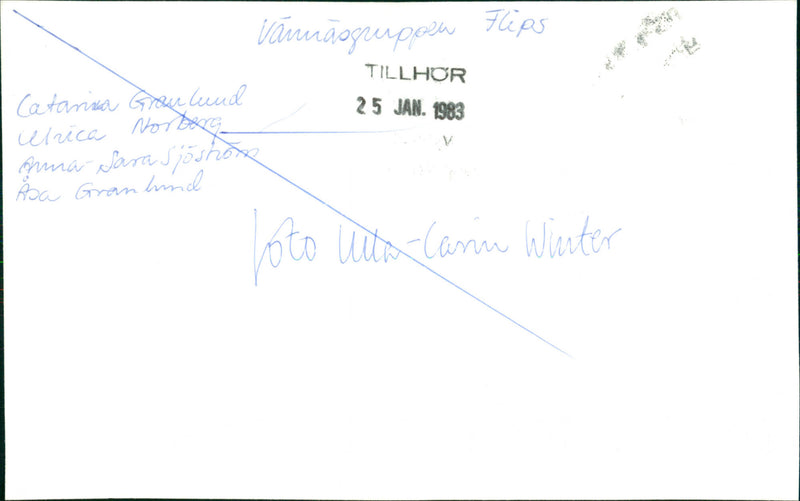 Vännäsgruppen Flips
TILLHÖR
25 JAN. 1983
V
Catarina Granlund
Ulrica Norberg
Anna-Sara Sjöström
Åsa Granlund
foto Ulla-Carin Winter